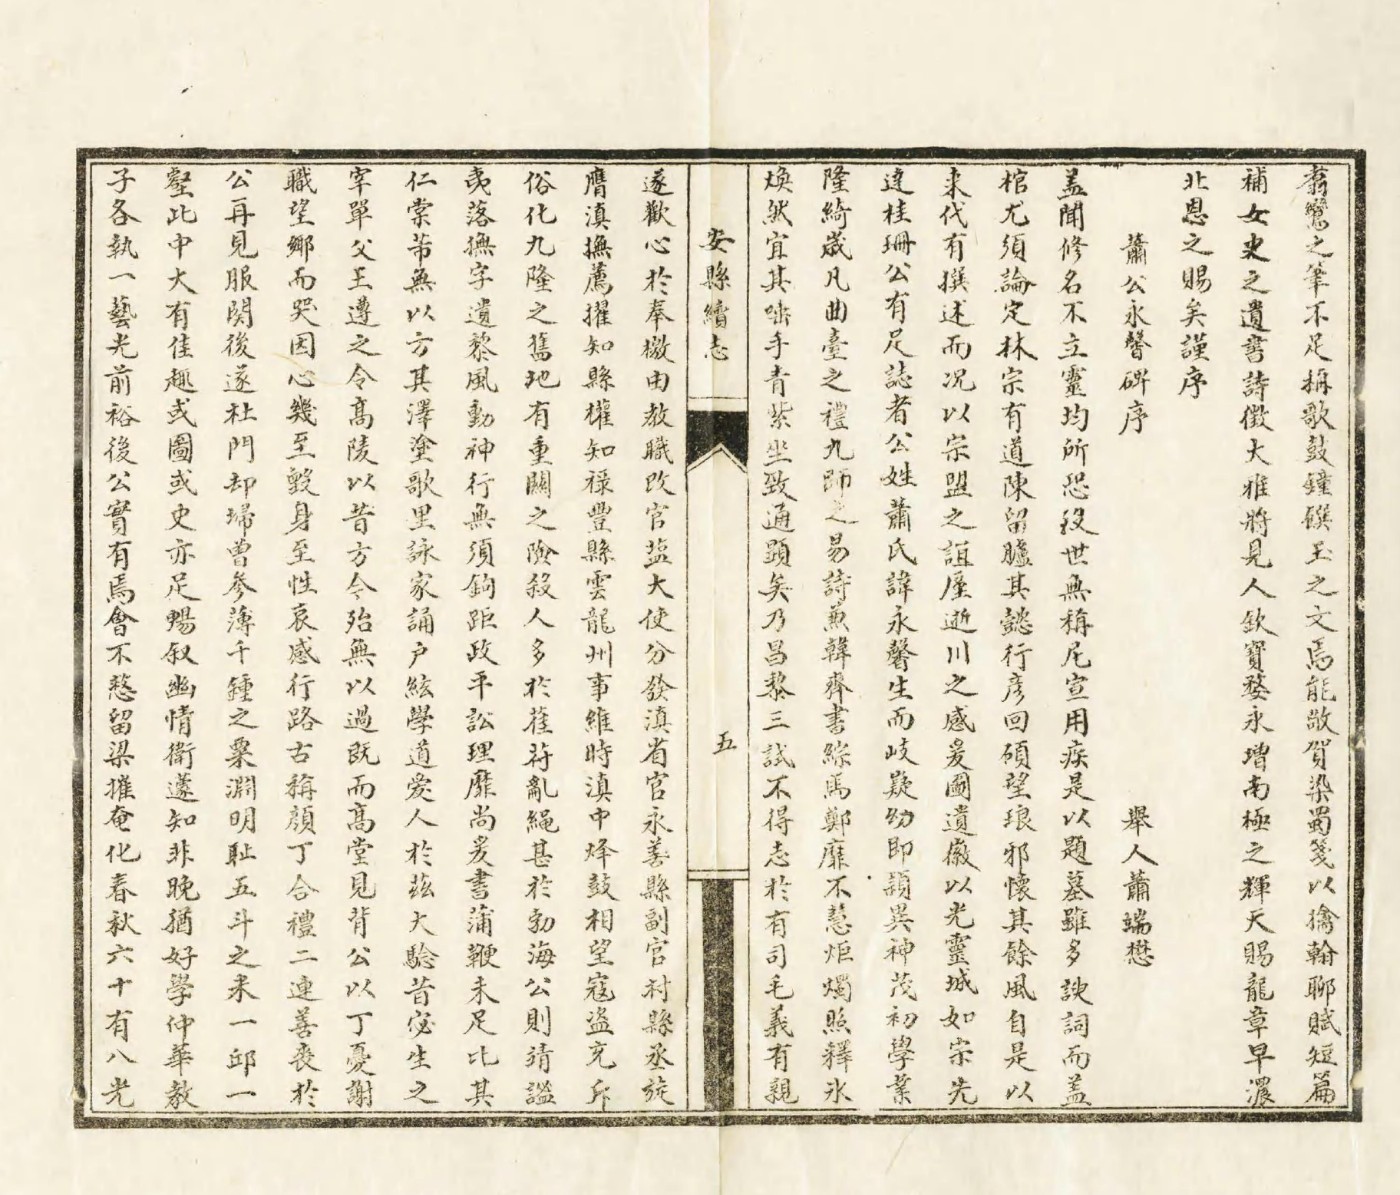 翥鸞之筆不足稱歌鼓鐘饌玉之文焉能敵賀染蜀箋以擒翰聊賦短篇
補女史之遺書詩徵大雅將見人欽寶婺永增南極之輝天賜龍章早濃
北恩之賜矣謹序
蕭公永馨碑序
舉人蕭端懋
盖聞修名不立靈均所恐没世無稱尼宣用疾是以題墓雖多諛詞而盖
棺尤須論定林宗有道陳留臚其懿行彦回碩望琅邪懷其餘風自是以
来代有撰述而况以宗盟之誼屢逝川之感爰圖遺徽以光靈城如宗先
達桂珊公有足誌者公姓蕭氏諱永馨生而岐嶷幼即頴異神茂初學業
隆綺歲凡曲臺之禮九師之易詩兼韓齊書綜馬鄭靡不慧炬燭照釋氷
焕然宜其唾手青紫坐致通顯矣乃昌黎三試不得志於有司毛義有親
安縣續志
五
遂歡心於奉檄由教職改官盐大使分發滇省官永善縣副官村縣丞旋
膺滇撫薦擢知縣權知禄豐縣雲龍州事維時滇中烽鼓相望寇盗充斥
俗化九隆之舊地有重關之險殺人多於萑苻亂繩甚於勃海公則靖謐
夷落撫字遺黎風動神行無須鉤距政平訟理靡尚爰書蒲鞭未足比其
仁棠芾無以方其澤塗歌里詠家誦户絃學道爱人於兹大驗昔宓生之
宰單父王遵之令高陵以昔方令殆無以過既而高堂見背公以丁憂謝
職望鄉而哭因心幾至毁身至性哀感行路古稱顔丁合禮二連善喪於
公再見服闋後遂杜門却埽曾參薄千鍾之粟淵明耻五斗之来一邱一
壑此中大有佳趣或圖或史亦足暢叙幽情衛蘧知非晚猶好學仲華教
子各執一藝光前裕後公實有焉會不慭留梁摧奄化春秋六十有八光